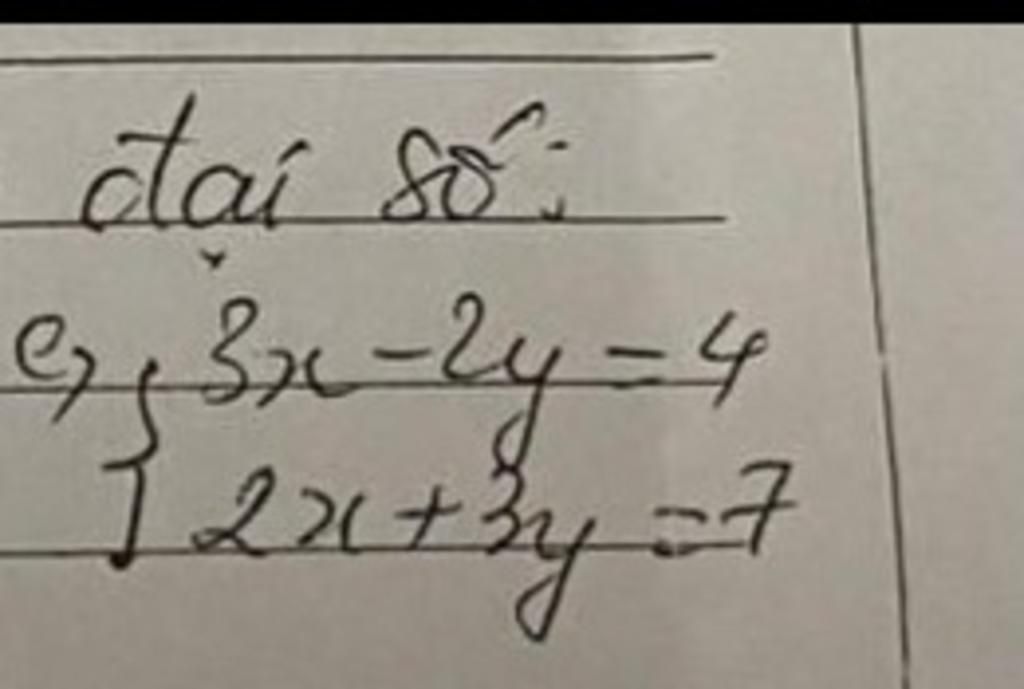 đại số:
e, { 3x - 2y = 4
2x + 3y = 7